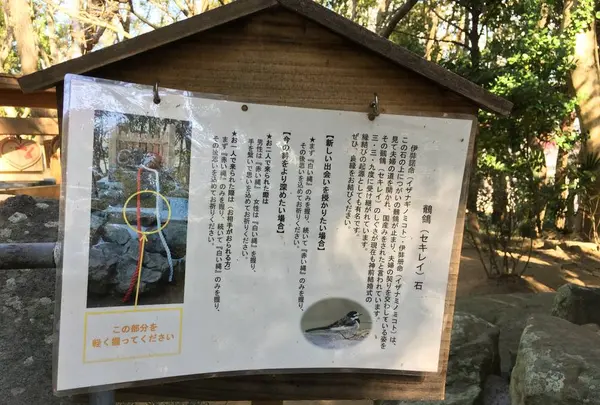 鶺鴒（セキレイ）石
伊弉諾命（イザナミノミコト）、伊弉册命（イザナミノミコト）は、
この石の上につがいの鶺鴒が止まり、夫婦の契りを交わしている姿を
見て夫婦の道を開かれ、国産みをされたと言われています。
その鶺鴒（セキレイ）のしぐさが現在も神前結婚式の
三・三・九度に受け継がれています。
縁結びの起源としても有名です。
ぜひ、良縁をお結びください。
【新しい出会いを授かりたい場合】
まず『白い縄』のみを握り、続いて『赤い縄』のみを握り、
その後思いを込めてお祈りください。
【今の絆をより深めたい場合】
★お二人で来られた際は
男性は『赤い縄』、女性は『白い縄』を握り、
手を繋いで思いを込めてお祈りください。
★お一人で来られた際は（お相手がおられる方）
まず『赤い縄』のみを握り、続いて『白い縄』のみを握り、
その後思いを込めてお祈りください。
この部分を
軽く握ってください